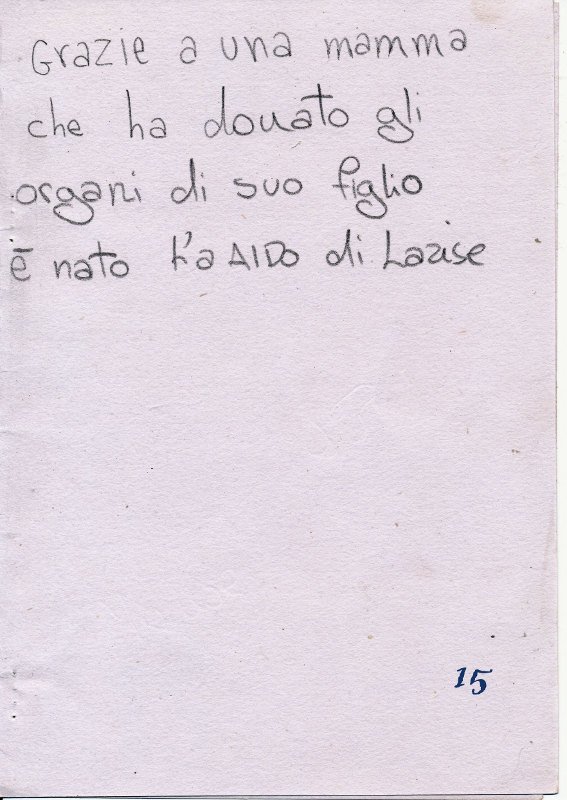 Grazie a una mamma
che ha donato gli
organi di suo figlio
è nato l'a AIDO di Lazise
15